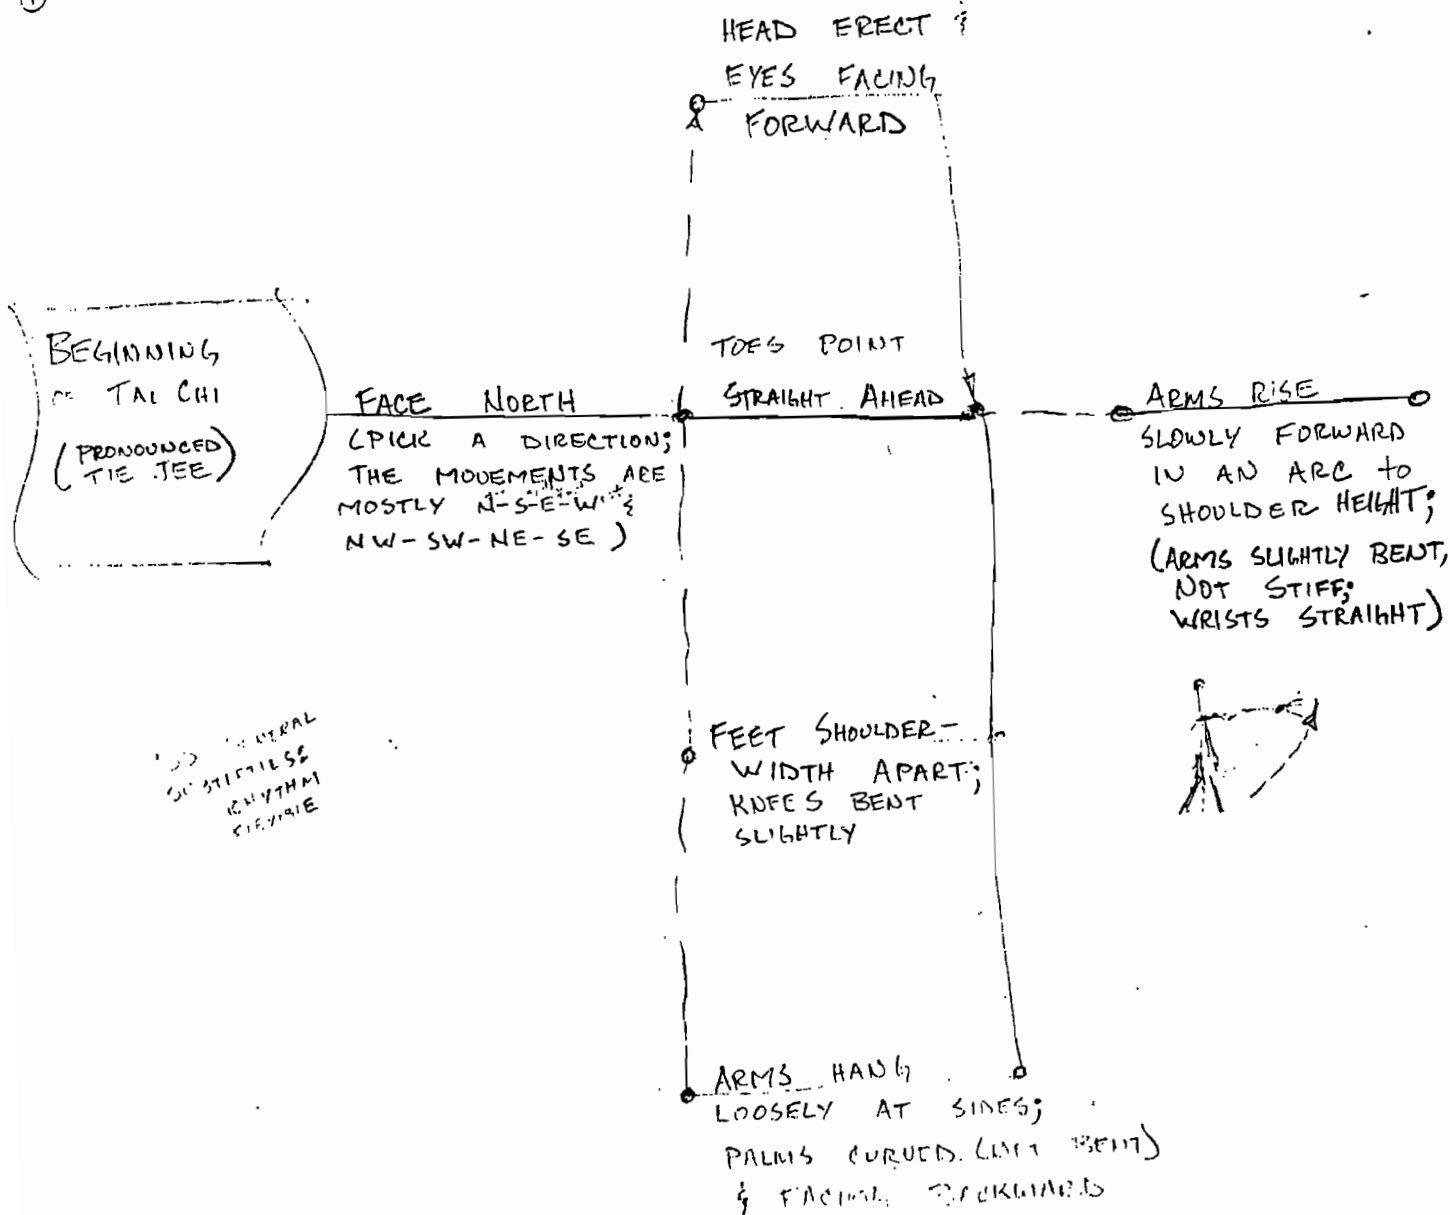 1
HEAD ERECT &
EYES FACING
FORWARD
BEGINNING
OF TAI CHI
(PRONOUNCED
TIE JEE)
FACE NORTH
(PICK A DIRECTION;
THE MOVEMENTS ARE
MOSTLY N-S-E-W &
NW-SW-NE-SE)
TOES POINT
STRAIGHT AHEAD
ARMS RISE
SLOWLY FORWARD
IN AN ARC to
SHOULDER HEIGHT;
(ARMS SLIGHTLY BENT,
NOT STIFF;
WRISTS STRAIGHT)
FEET SHOULDER-
WIDTH APART;
KNEES BENT
SLIGHTLY
RHYTHM
ARMS HANG
LOOSELY AT SIDES;
PALMS CURVED (NOT BENT)
& FACING BACKWARD